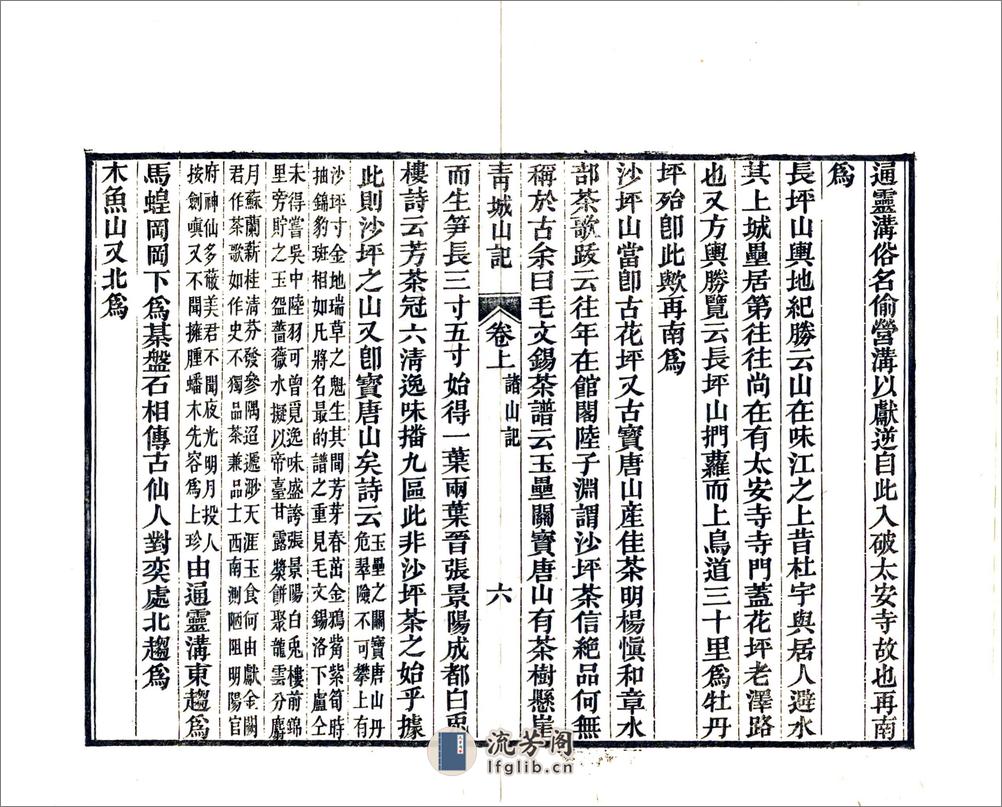 通靈溝俗名偷營溝以獻逆自此入破太安寺故也再南
爲
長坪山輿地紀勝云山在味江之上昔杜宇與居人避水
其上城壘居第往往尚在有太安寺寺門蓋花坪老澤路
也又方輿勝覽云長坪山捫蘿而上鳥道三十里爲牡丹
坪殆卽此歟再南爲
沙坪山當卽古花坪又古寶唐山産佳茶明楊愼和章水
部茶歌跋云往年在館閣陸子淵謂沙坪茶信絶品何無
稱於古余曰毛文錫茶譜云玉壘關寶唐山有茶樹懸崖
靑城山記
卷上
諸山記
六
而生笋長三寸五寸始得一葉兩葉晉張景陽成都白兎
樓詩云芳茶冠六淸逸味播九區此非沙坪茶之始乎據
此則沙坪之山又卽寶唐山矣詩云
玉壘之關寶唐山丹
危翠險不可攀上有
沙坪寸金地瑞草之魁生其間芳芽春茁金鴉觜紫筍時
抽錦豹斑相如凡將名最的譜之重見毛文錫洛下盧仝
未得嘗吳中陸羽可曾覓逸味盛誇張景陽白兎樓前錦
里旁貯之玉盌薔薇水擬以帝臺甘露漿餅聚龍雲分麝
月蘇蘭薪桂淸芬發參隅迢遞渺天涯玉食何由獻金闕
君作茶歌如作史不獨品茶兼品士西南測陋阻明陽官
府神仙多蔽美君不聞夜光明月投人
按劍嗔又不聞擁腫蟠木先容爲上珍
由通靈溝東趨爲
馬蝗岡岡下爲棊盤石相傳古仙人對奕處北趨爲
木魚山又北爲
流芳阁
lfglib.cn